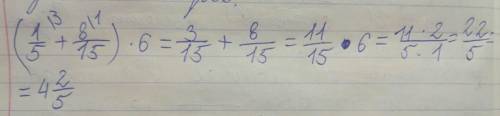 (1/5 \3 + 8/15 \1) · 6 = 3/15 + 8/15 = 11/15 · 6 = 11 · 2/5 · 1 = 22/5 =
= 4 2/5